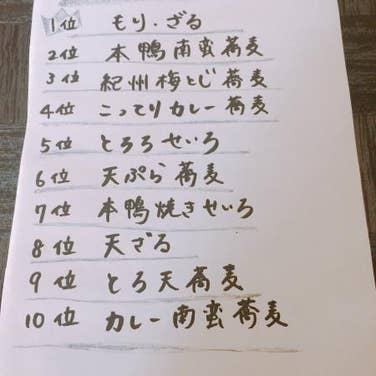 1位 もり・ざる
2位 本鴨南蛮蕎麦
3位 紀州梅とじ蕎麦
4位 こってりカレー蕎麦
5位 とろろせいろ
6位 天ぷら蕎麦
7位 本鴨焼きせいろ
8位 天ざる
9位 とろ天蕎麦
10位 カレー南蛮蕎麦